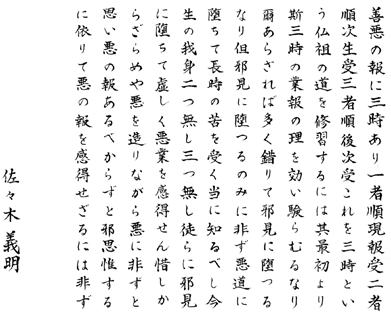 善悪の報に三時あり一者順現報受二者
順次生受三者順後次受これを三時とい
う佛祖の道を修習するには其最初より
斯三時の業報の理を効い験らむるなり
爾あらざれば多く錯りて邪見に堕つる
なり但邪見に堕つるのみに非ず悪道に
堕ちて長時の苦を受く当に知るべし今
生の我身二つ無し三つ無し徒らに邪見
に堕ちて虚しく悪業を感得せん惜しか
らざらめや悪を造りながら悪に非ずと
思い悪の報あるべからずと邪思惟する
に依りて悪の報を感得せざるには非ず
佐々木義明